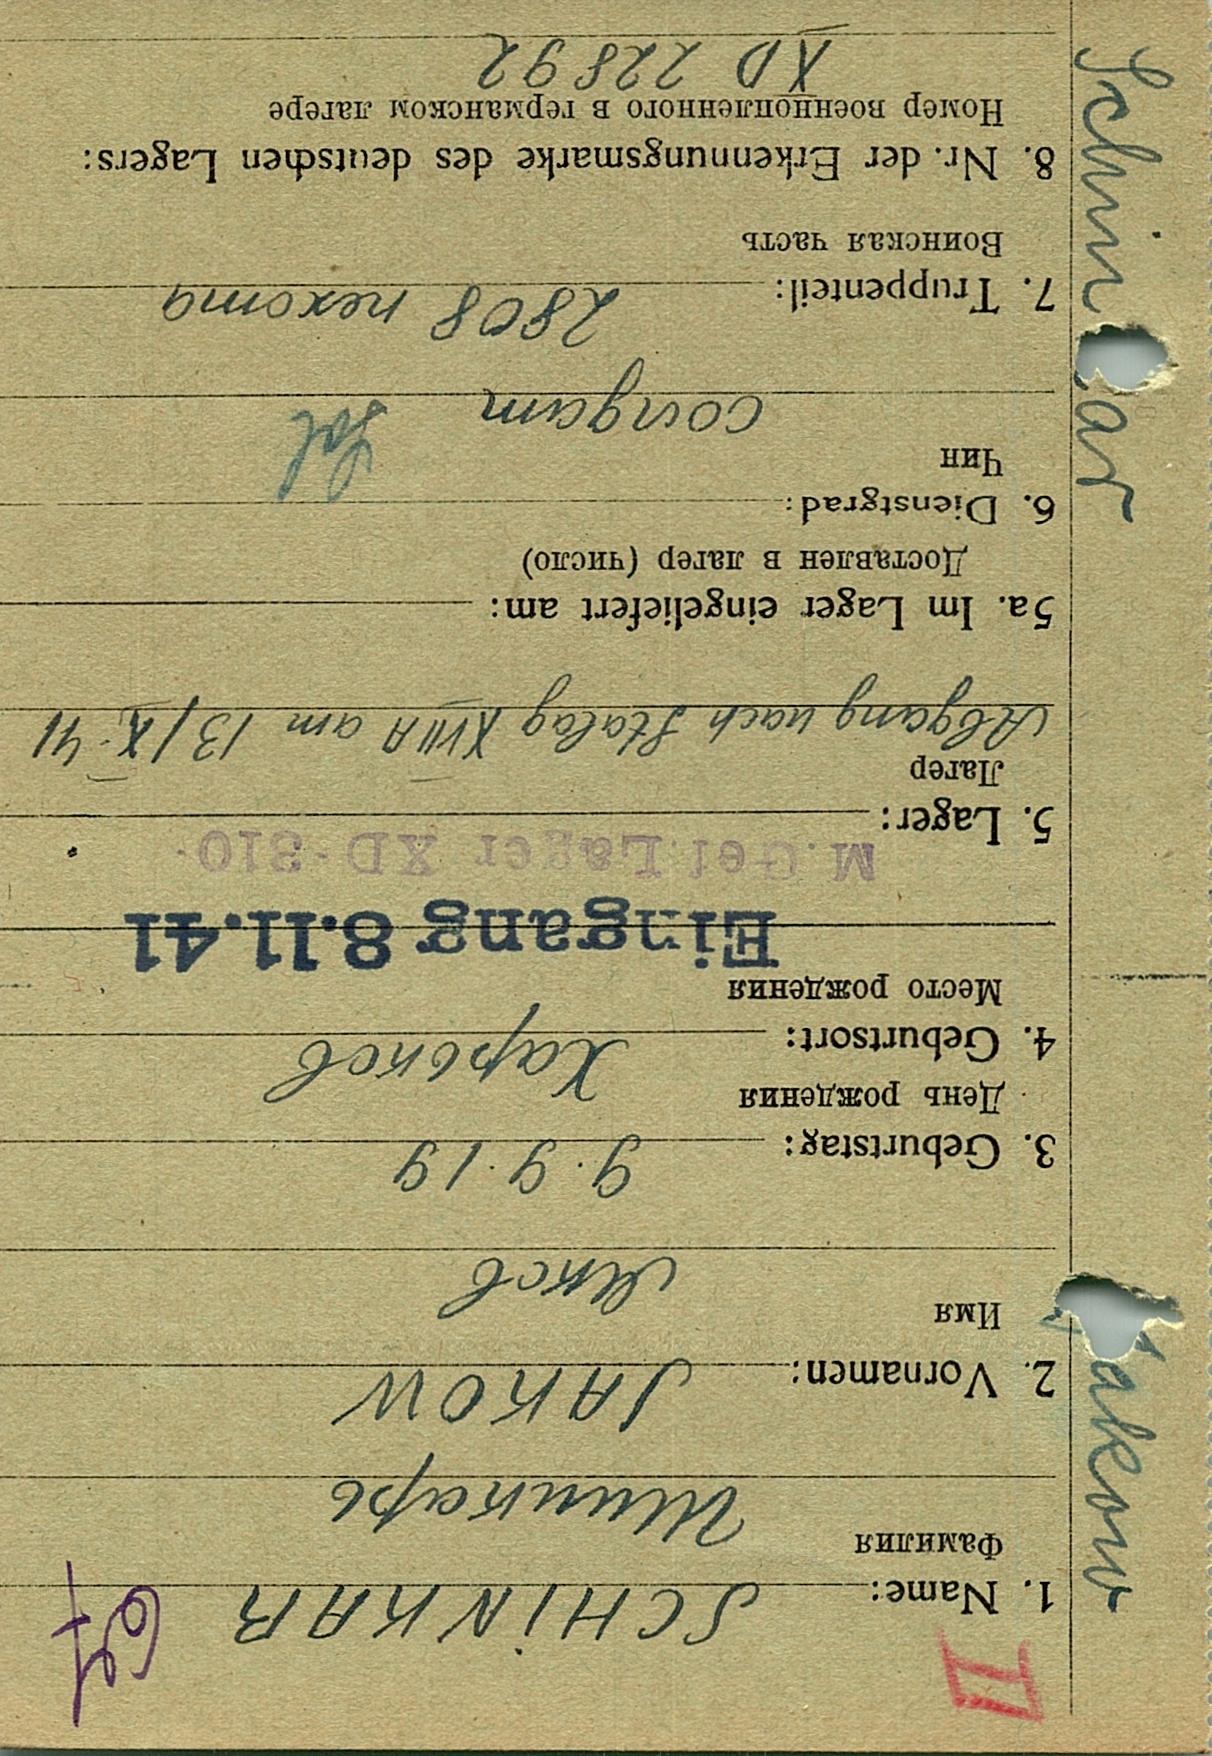 II
1. Name: SCHINKAR
Фамилия Шинкарь
2. Vornamen: JAKOW
Имя Яков
3. Geburtstag: 9.9.19
День рождения
4. Geburtsort: Харьков
Место рождения
Eingang 8.11.41
M.Gef.Lager XD-310
5. Lager:
Лагер
Abgang nach Stalag XVII A am 13/X.41
5a. Im Lager eingeliefert am:
Доставлен в лагер (число)
6. Dienstgrad:
Чин
солдат Sol
7. Truppenteil: 2808 пехота
Воинская часть
8. Nr. der Erkennungsmarke des deutschen Lagers:
Номер военнопленного в германском лагере
XD 22892
Schin ar
Jakow